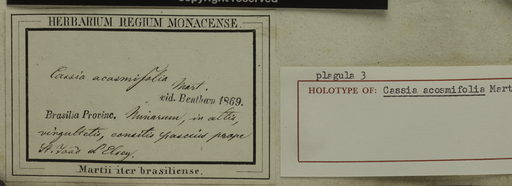 copyright reserved
HERBARIUM REGIUM MONACENSE.
Cassia acosmifolia
Mart.
vid. Bentham 1869.
Brasilia Provinc. Minarum, in altis,
virgultetis, consitis pascuis prope
St. João d'Elrey.
Martii iter brasiliense.
plagula 3
HOLOTYPE OF: Cassia acosmifolia Mart